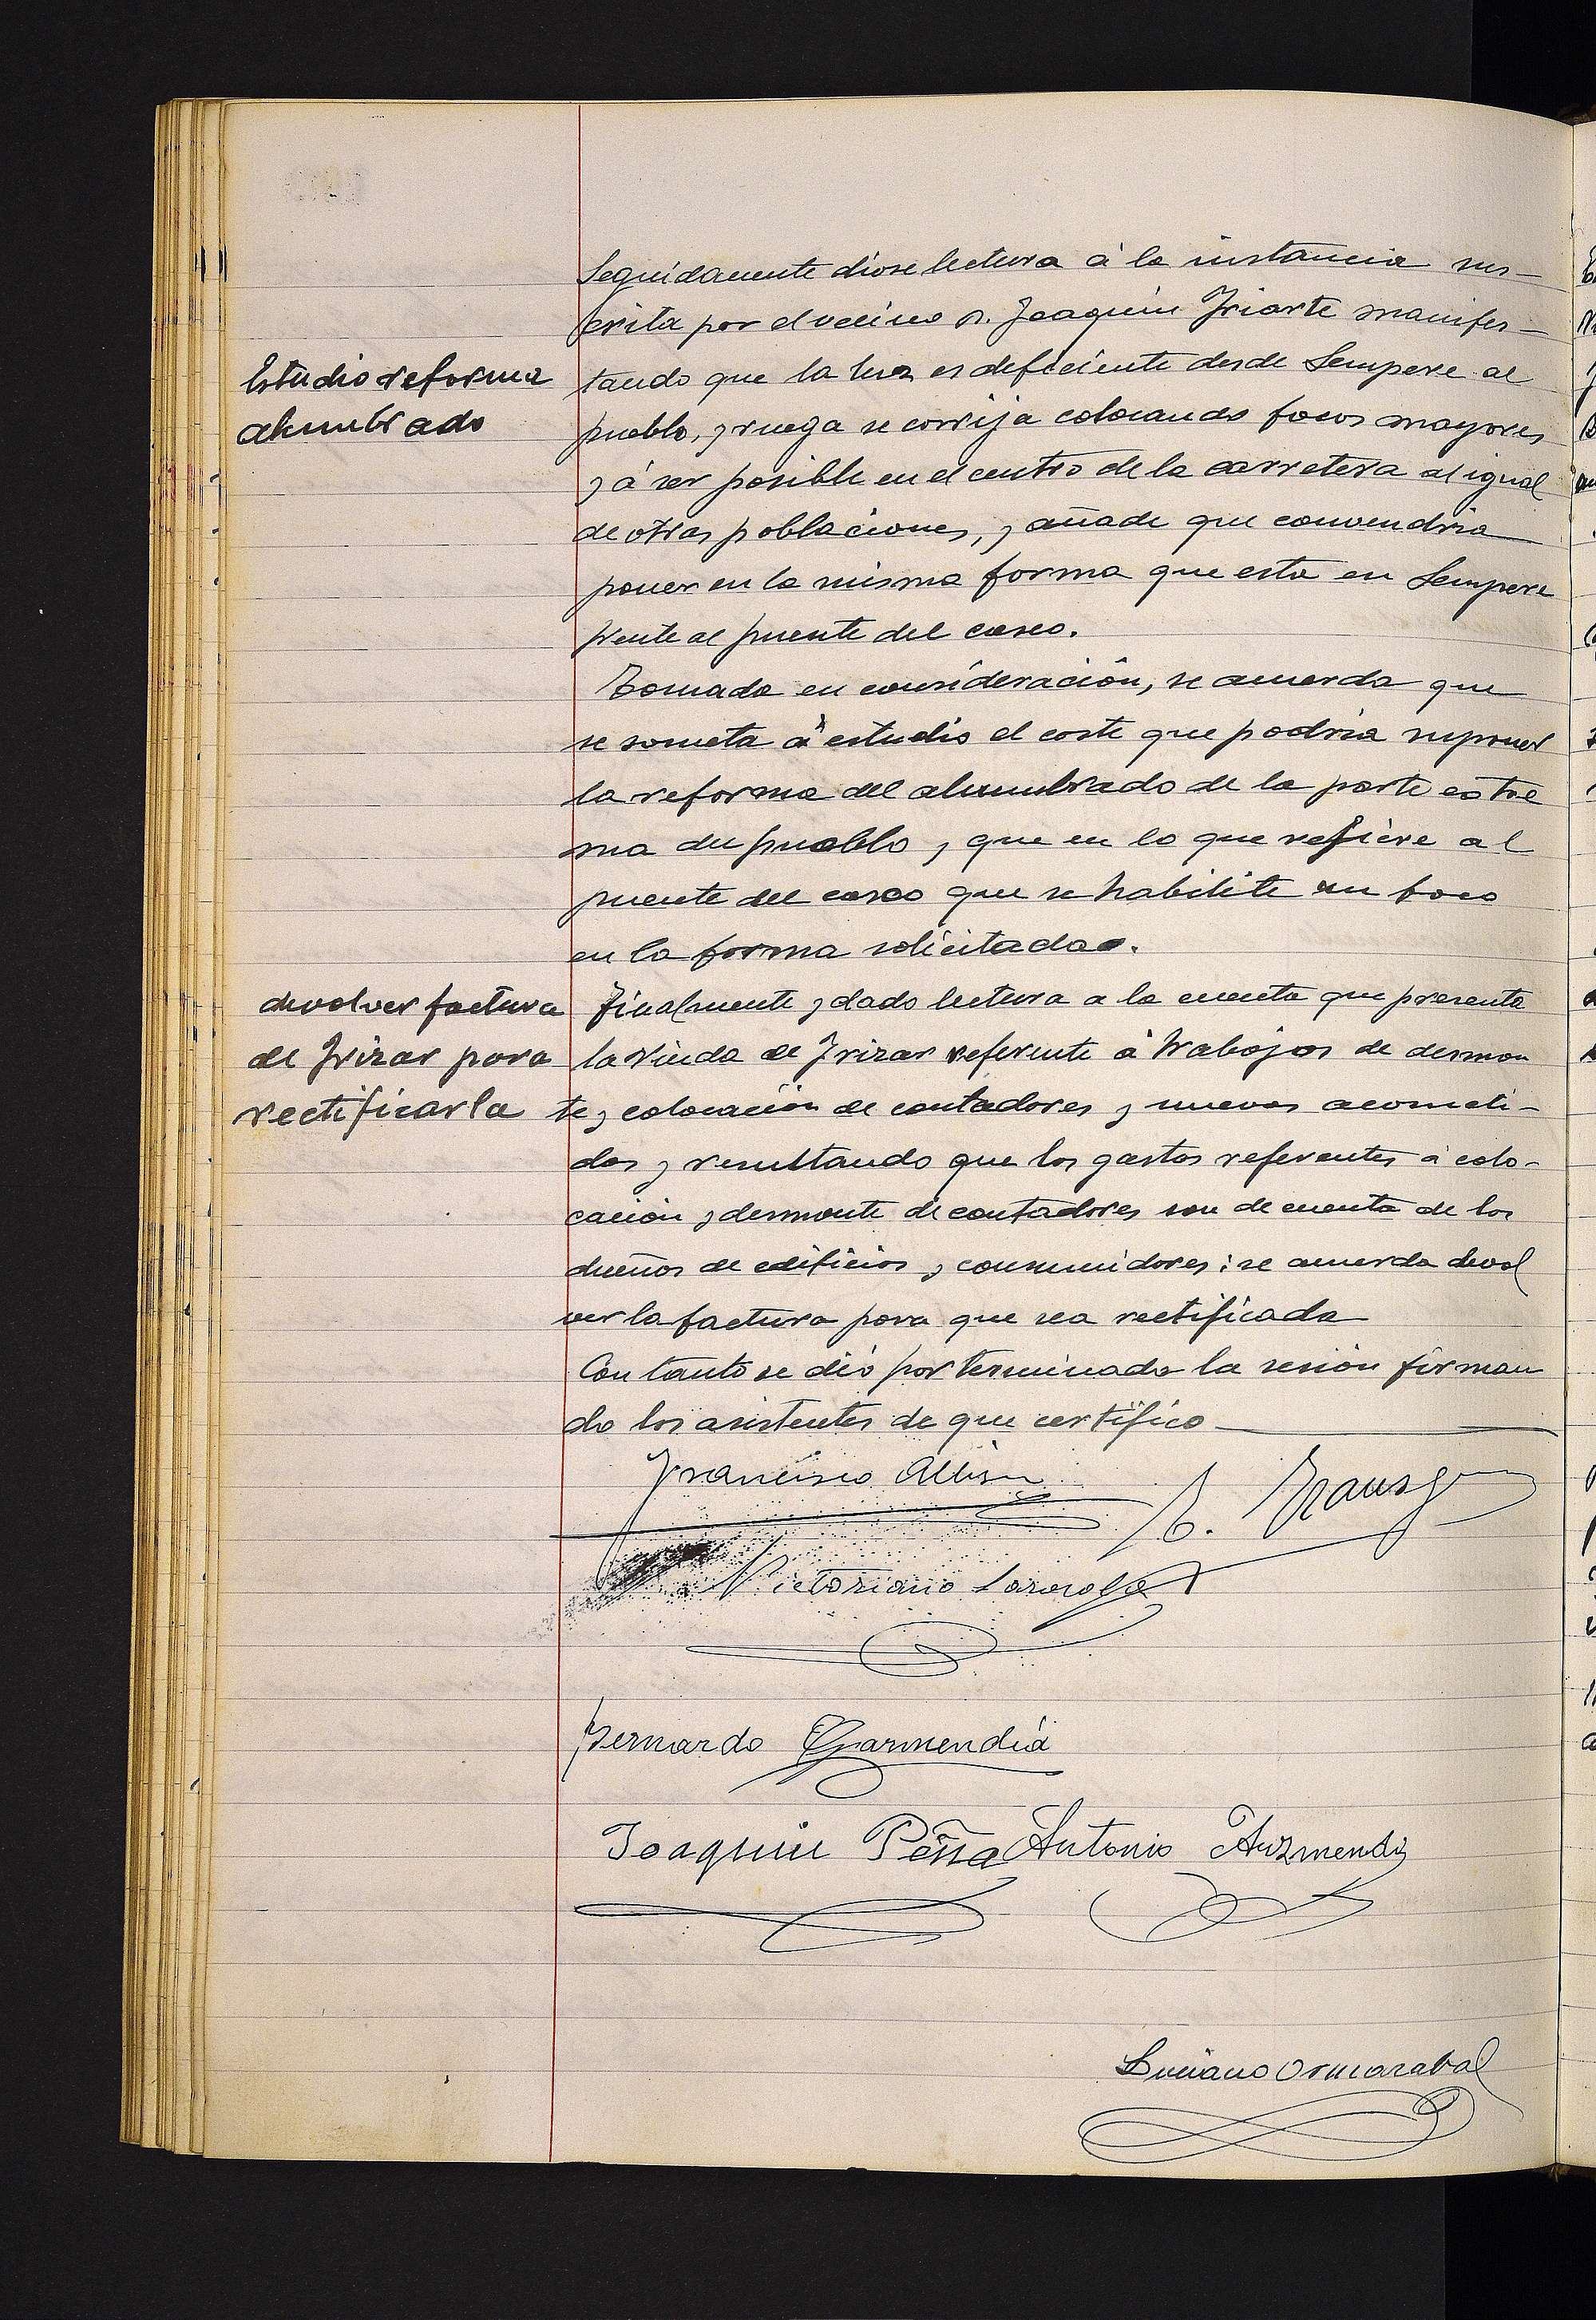 Seguidamente diose lectura á la instancia sus-
crita por el vecino D. Joaquin Iriarte manifes-
Estudio reforma
alumbrado
tando que la luz es deficiente desde Sempere al
pueblo, y ruega se corrija colocando focos mayores
y á ser posible en el centro de la carretera al igual
de otras poblaciones, y añade que convendria
poner en la misma forma que esta en Sempere
frente al puente del casco.
Tomada en consideración, se acuerda que
se someta á estudio el coste que podria suponer
la reforma del alumbrado de la parte estre
ma del pueblo y que en lo que refiere al
puente del casco que se habilite un foco
en la forma solicitada.
devolver factura
de Irizar para
rectificarla
Finalmente y dado lectura a la cuenta que presenta
la Viuda de Irizar referente á trabajos de desmon
te y colocación de contadores y nuevas acometi-
das y resultando que los gastos referentes á colo-
cación y desmonte de contadores son de cuenta de los
dueños de edificios y consumidores: se acuerda devol
ver la factura para que sea rectificada
Con tanto se dió por terminada la sesión firman
do los asistentes de que certifico
Francisco
Victoriano
Bernardo Garmendia
Joaquin Peña Antonio Auzmendi
Luciano Ormazabal